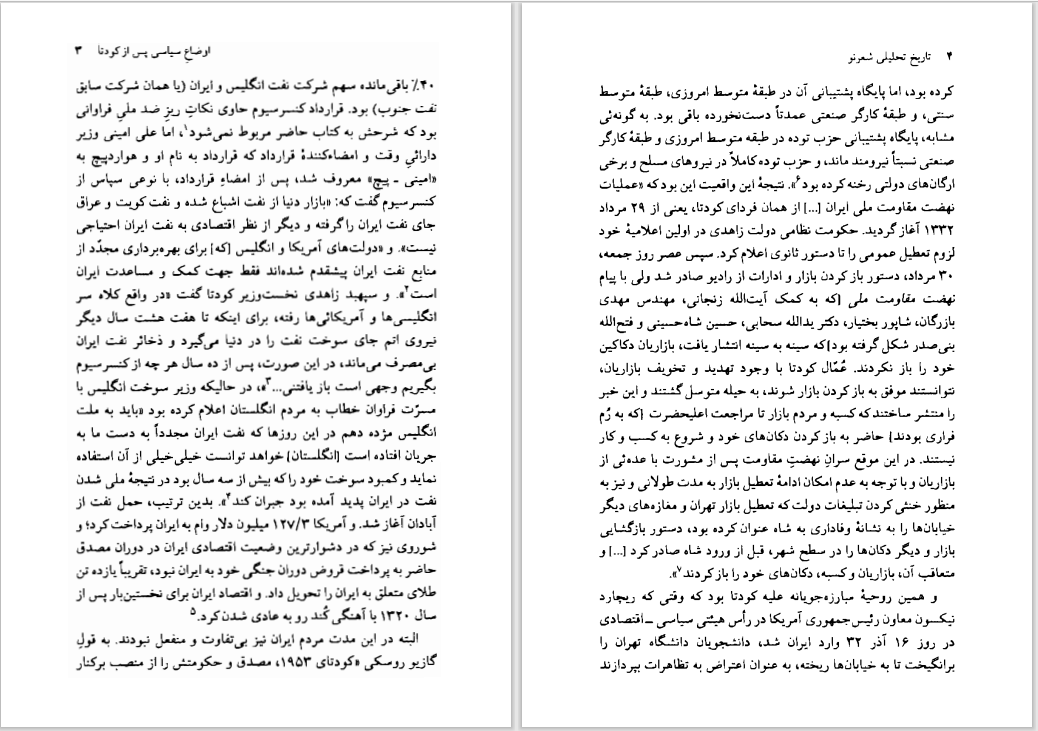 اوضاعِ سیاسی پس از کودتا ۳
۴۰٪ باقی‌مانده سهم شرکت نفت انگلیس و ایران (یا همان شرکت سابق
نفت جنوب) بود. قرارداد کنسرسیوم حاوی نکاتِ ریزِ ضد ملیِ فراوانی
بود که شرحش به کتاب حاضر مربوط نمی‌شود۱، اما علی امینی وزیر
دارائیِ وقت و امضاءکنندهٔ قرارداد که قرارداد به نام او و هواردپیچ به
«امینی ـ پیچ» معروف شد، پس از امضاءِ قرارداد، با نوعی سپاس از
کنسرسیوم گفت که: «بازار دنیا از نفت اشباع شده و نفت کویت و عراق
جای نفت ایران را گرفته و دیگر از نظر اقتصادی به نفت ایران احتیاجی
نیست». و «دولت‌های آمریکا و انگلیس [که] برای بهره‌برداری مجدّد از
منابع نفت ایران پیشقدم شده‌اند فقط جهت کمک و مساعدت ایران
است۲». و سپهبد زاهدی نخست‌وزیر کودتا گفت «در واقع کلاه سر
انگلیسی‌ها و آمریکائی‌ها رفته، برای اینکه تا هفت هشت سال دیگر
نیروی اتم جای سوخت نفت را در دنیا می‌گیرد و ذخائر نفت ایران
بی‌مصرف می‌ماند، در این صورت، پس از ده سال هر چه از کنسرسیوم
بگیریم وجهی است باز یافتنی...۳»، در حالیکه وزیر سوخت انگلیس با
مسرّت فراوان خطاب به مردم انگلستان اعلام کرده بود «باید به ملت
انگلیس مژده دهم در این روزها که نفت ایران مجدداً به دست ما به
جریان افتاده است [انگلستان] خواهد توانست خیلی‌خیلی از آن استفاده
نماید و کمبود سوخت خود را که بیش از سه سال بود در نتیجهٔ ملی شدن
نفت در ایران پدید آمده بود جبران کند۴». بدین ترتیب، حمل نفت از
آبادان آغاز شد. و آمریکا ۱۲۷/۳ میلیون دلار وام به ایران پرداخت کرد؛ و
شوروی نیز که در دشوارترین وضعیت اقتصادی ایران در دوران مصدق
حاضر به پرداخت قروض دوران جنگی خود به ایران نبود، تقریباً یازده تن
طلای متعلق به ایران را تحویل داد. و اقتصاد ایران برای نخستین‌بار پس از
سال ۱۳۲۰ با آهنگی کُند رو به عادی شدن کرد.۵
البته در این مدت مردم ایران نیز بی‌تفاوت و منفعل نبودند. به قولِ
گازیو روسکی «کودتای ۱۹۵۳، مصدق و حکومتش را از منصب برکنار
۴ تاریخ تحلیلی شعرنو
کرده بود، اما پایگاه پشتیبانی آن در طبقهٔ متوسط امروزی، طبقهٔ متوسط
سنتی، و طبقهٔ کارگر صنعتی عمدتاً دست‌نخورده باقی بود. به گونه‌ئی
مشابه، پایگاه پشتیبانی حزب توده در طبقه متوسط امروزی و طبقهٔ کارگر
صنعتی نسبتاً نیرومند ماند، و حزب توده کاملاً در نیروهای مسلح و برخی
ارگان‌های دولتی رخنه کرده بود۶». نتیجهٔ این واقعیت این بود که «عملیات
نهضت مقاومت ملی ایران [...] از همان فردای کودتا، یعنی از ۲۹ مرداد
۱۳۳۲ آغاز گردید. حکومت نظامی دولت زاهدی در اولین اعلامیهٔ خود
لزوم تعطیل عمومی را تا دستور ثانوی اعلام کرد. سپس عصر روز جمعه،
۳۰ مرداد، دستور باز کردن بازار و ادارات از رادیو صادر شد ولی با پیام
نهضت مقاومت ملی [که به کمک آیت‌الله زنجانی، مهندس مهدی
بازرگان، شاپور بختیار، دکتر یدالله سحابی، حسین شاه‌حسینی و فتح‌الله
بنی‌صدر شکل گرفته بود] که سینه به سینه انتشار یافت، بازاریان دکاکین
خود را باز نکردند. عُمّال کودتا با وجود تهدید و تخویف بازاریان،
نتوانستند موفق به باز کردن بازار شوند، به حیله متوسل گشتند و این خبر
را منتشر ساختند که کسبه و مردم بازار تا مراجعت اعلیحضرت [که به رُم
فراری بودند] حاضر به باز کردن دکان‌های خود و شروع به کسب و کار
نیستند. در این موقع سرانِ نهضتِ مقاومت پس از مشورت با عده‌ئی از
بازاریان و با توجه به عدم امکان ادامهٔ تعطیل بازار به مدت طولانی و نیز به
منظور خنثی کردن تبلیغات دولت که تعطیل بازار تهران و مغازه‌های دیگر
خیابان‌ها را به نشانهٔ وفاداری به شاه عنوان کرده بود، دستور بازگشایی
بازار و دیگر دکان‌ها را در سطح شهر، قبل از ورود شاه صادر کرد [...] و
متعاقب آن، بازاریان و کسبه، دکان‌های خود را باز کردند۷».
و همین روحیهٔ مبارزه‌جویانه علیه کودتا بود که وقتی که ریچارد
نیکسون معاون رئیس‌جمهوری آمریکا در رأس هیئتی سیاسی ـ اقتصادی
در روز ۱۶ آذر ۳۲ وارد ایران شد، دانشجویان دانشگاه تهران را
برانگیخت تا به خیابان‌ها ریخته، به عنوان اعتراض به تظاهرات بپردازند